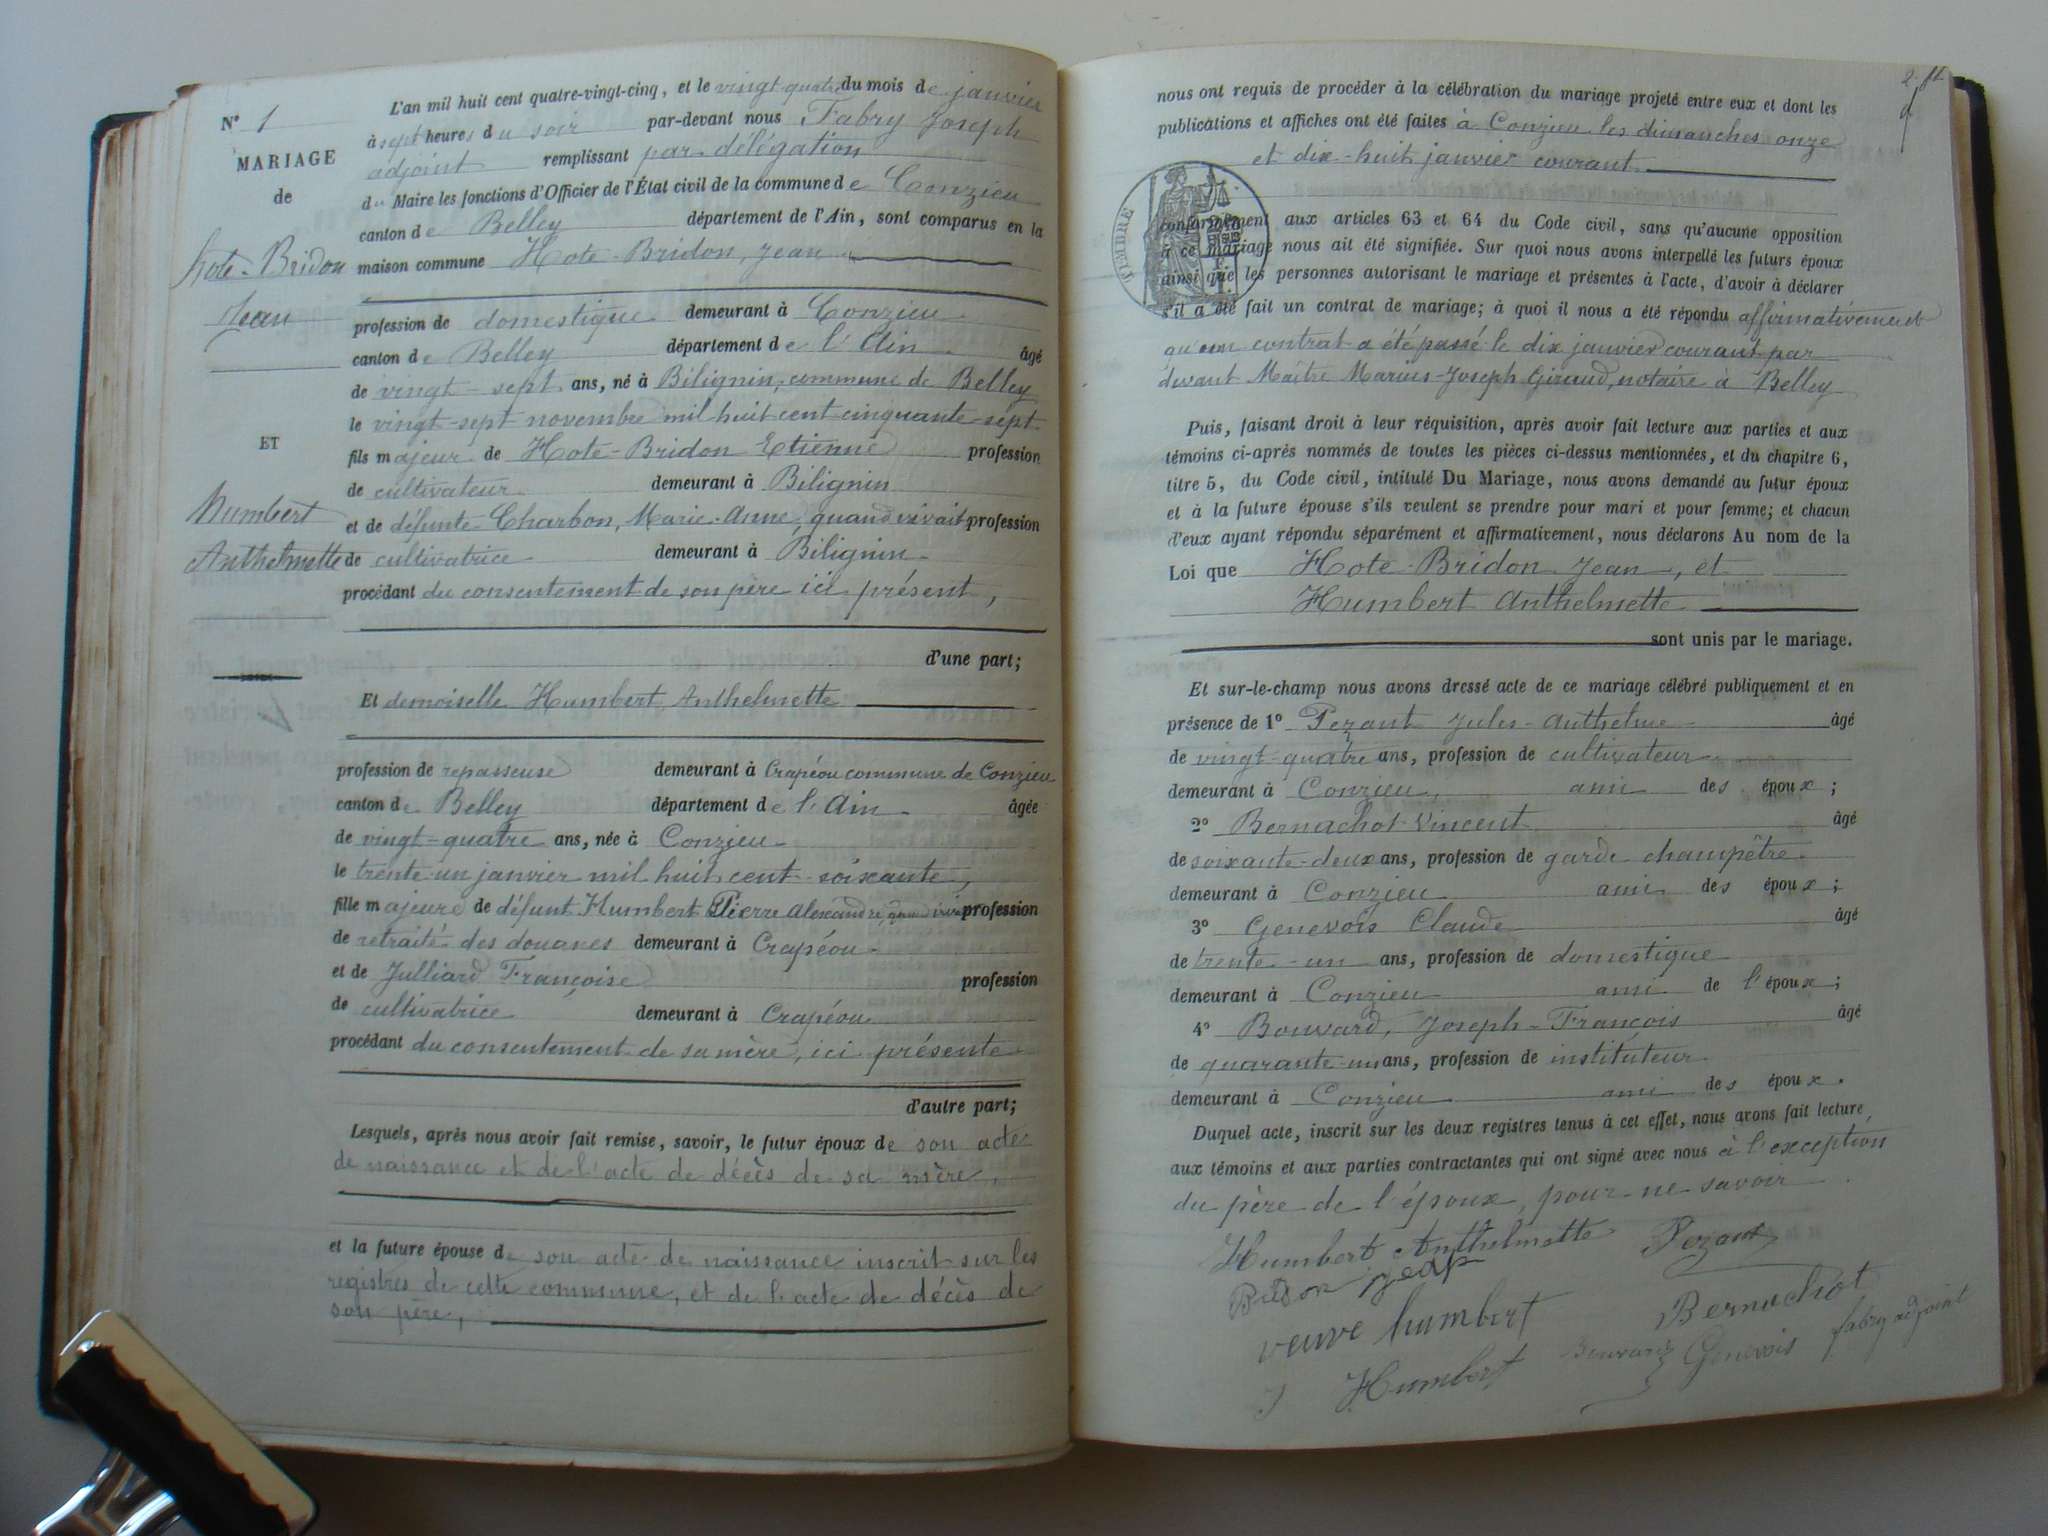 N° 1
MARIAGE
de
Hote-Bridon
Jean
ET
Humbert
Anthelmette
L'an mil huit cent quatre-vingt-cinq, et le vingt quatre du mois de janvier
à sept heures du soir par-devant nous Fabry Joseph
adjoint remplissant par délégation
du Maire les fonctions d'Officier de l'État civil de la commune de Conzieu
canton de Belley département de l'Ain, sont comparus en la
maison commune Hote-Bridon, Jean
profession de domestique demeurant à Conzieu
canton de Belley département de l'Ain âgé
de vingt-sept ans, né à Bilignin, commune de Belley
le vingt-sept novembre mil huit cent cinquante-sept
fils majeur de Hote-Bridon Etienne profession
de cultivateur demeurant à Bilignin
et de défunte Charbon, Marie-Anne, quand vivait profession
de cultivatrice demeurant à Bilignin
procédant du consentement de son père ici présent,
d'une part;
Et demoiselle Humbert Anthelmette
profession de repasseuse demeurant à Crapéou commune de Conzieu
canton de Belley département de l'Ain âgée
de vingt-quatre ans, née à Conzieu
le trente-un janvier mil huit cent soixante,
fille majeure de défunt Humbert Pierre Alexandre, quand vivait profession
de retraité des douanes demeurant à Crapéou
et de Julliard Françoise profession
de cultivatrice demeurant à Crapéou
procédant du consentement de sa mère, ici présente
d'autre part;
Lesquels, après nous avoir fait remise, savoir, le futur époux de son acte
de naissance et de l'acte de décès de sa mère,
et la future épouse de son acte de naissance inscrit sur les
registres de cette commune, et de l'acte de décès de
son père,
nous ont requis de procéder à la célébration du mariage projeté entre eux et dont les
publications et affiches ont été faites à Conzieu les dimanches onze
et dix-huit janvier courant
TIMBRE
conformément aux articles 63 et 64 du Code civil, sans qu'aucune opposition
à ce mariage nous ait été signifiée. Sur quoi nous avons interpellé les futurs époux
ainsi que les personnes autorisant le mariage et présentes à l'acte, d'avoir à déclarer
s'il a été fait un contrat de mariage; à quoi il nous a été répondu affirmativement
qu'un contrat a été passé le dix janvier courant par
devant Maître Marius-Joseph Giraud, notaire à Belley
Puis, faisant droit à leur réquisition, après avoir fait lecture aux parties et aux
témoins ci-après nommés de toutes les pièces ci-dessus mentionnées, et du chapitre 6,
titre 5, du Code civil, intitulé Du Mariage, nous avons demandé au futur époux
et à la future épouse s'ils veulent se prendre pour mari et pour femme; et chacun
d'eux ayant répondu séparément et affirmativement, nous déclarons Au nom de la
Loi que Hote-Bridon Jean, et
Humbert Anthelmette
sont unis par le mariage.
Et sur-le-champ nous avons dressé acte de ce mariage célébré publiquement et en
présence de 1° Pezant Jules-Anthelme âgé
de vingt-quatre ans, profession de cultivateur
demeurant à Conzieu, ami des époux;
2° Bernachot Vincent âgé
de soixante-deux ans, profession de garde champêtre
demeurant à Conzieu ami des époux;
3° Genevois Claude âgé
de trente-un ans, profession de domestique
demeurant à Conzieu ami de l'époux;
4° Bouvard, Joseph-François âgé
de quarante-un ans, profession de instituteur
demeurant à Conzieu ami des époux.
Duquel acte, inscrit sur les deux registres tenus à cet effet, nous avons fait lecture
aux témoins et aux parties contractantes qui ont signé avec nous à l'exception
du père de l'époux, pour ne savoir
Humbert Anthelmette Pezant
Bridon jean
veuve humbert Bernachot
Bouvard Genevois fabry adjoint
J Humbert